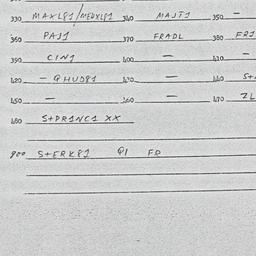 330 MAXL81/MEDXL81 340 MAJT1 350 -
360 PAJ1 370 FRADL 380
390 CIN1 400 - 410 -
420 - QHUD81 430 - 440
450 - 460 - 470
480 S+PR1NC1 XX
900 S+ERK81 Q1 FR